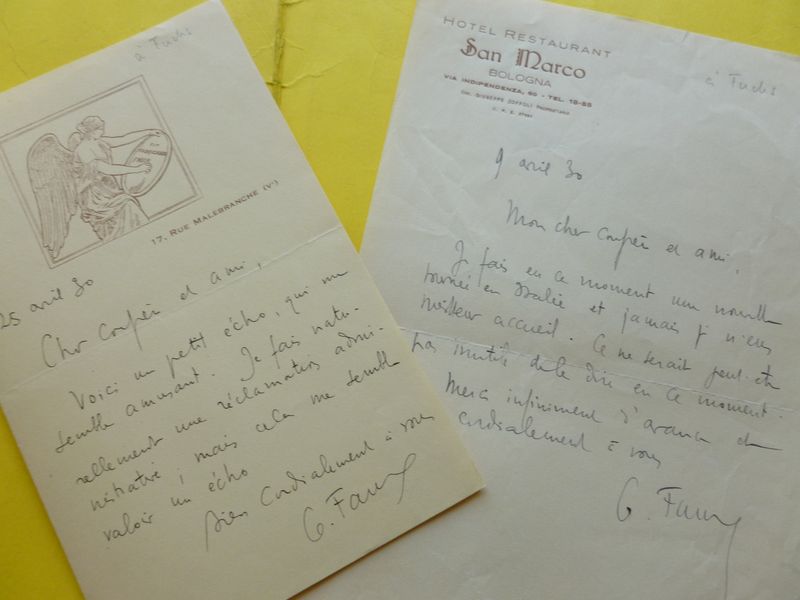 à Fuchs
17, RUE MALEBRANCHE (Vᵉ)
25 avril 30
Cher Confrère et ami,
Voici un petit écho, qui me
semble amusant. Je fais natu-
rellement une réclamation admi-
nistrative ; mais cela me semble
valoir un écho
Bien Cordialement à vous
G. Faure
à Fuchs
HOTEL RESTAURANT
San Marco
BOLOGNA
VIA INDIPENDENZA, 60 - TEL. 18-65
CAV. GIUSEPPE ZOFFOLI PROPRIETARIO
9 avril 30
Mon cher Confrère et ami,
Je fais en ce moment une nouvelle
tournée en Italie et jamais je n'eus
meilleur accueil. Ce ne serait peut-être
pas inutile de le dire en ce moment.
Merci infiniment d'avance et
cordialement à vous
G. Faure